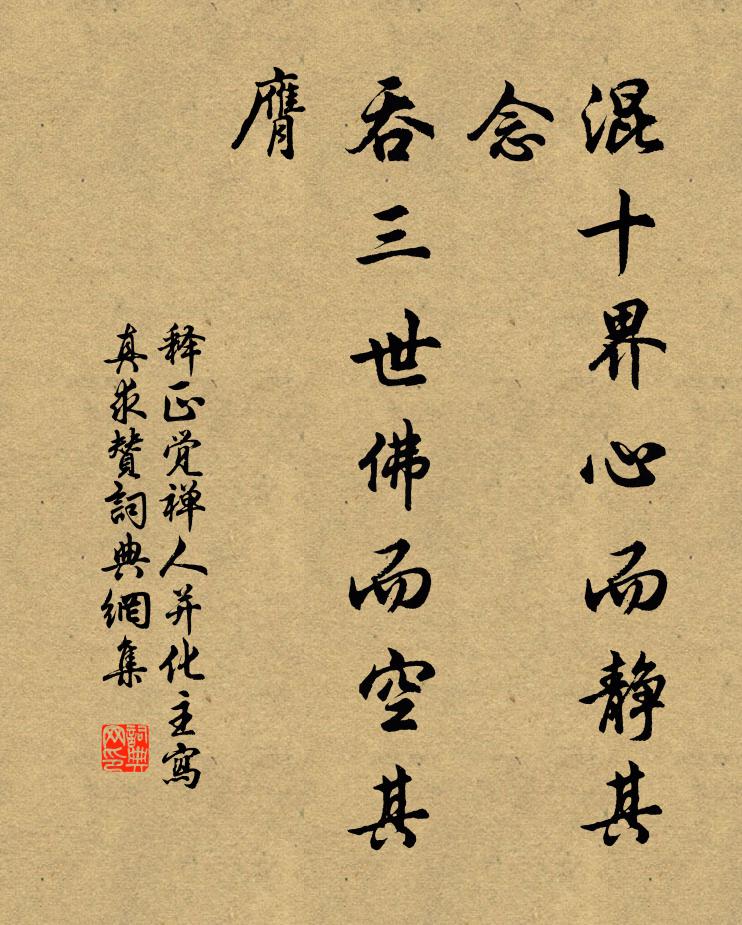 混十界心而静其
念
吞三世佛而空其
膺
释正觉禅人并化主寫
真求赞詞典網集
詞典
网印